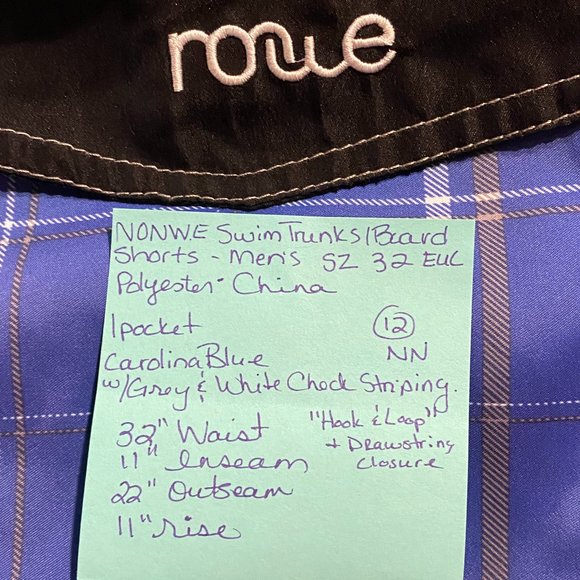 nonwe
NONW.E Swim Trunks/Board
Shorts - Men's SZ 32 EUC
Polyester - China
1 pocket
12
NN
Carolina Blue
w/Grey & White Check Striping.
32" Waist
11" Inseam
22" Outseam
11" rise
"Hook & Loop"
+ Drawstring
Closure